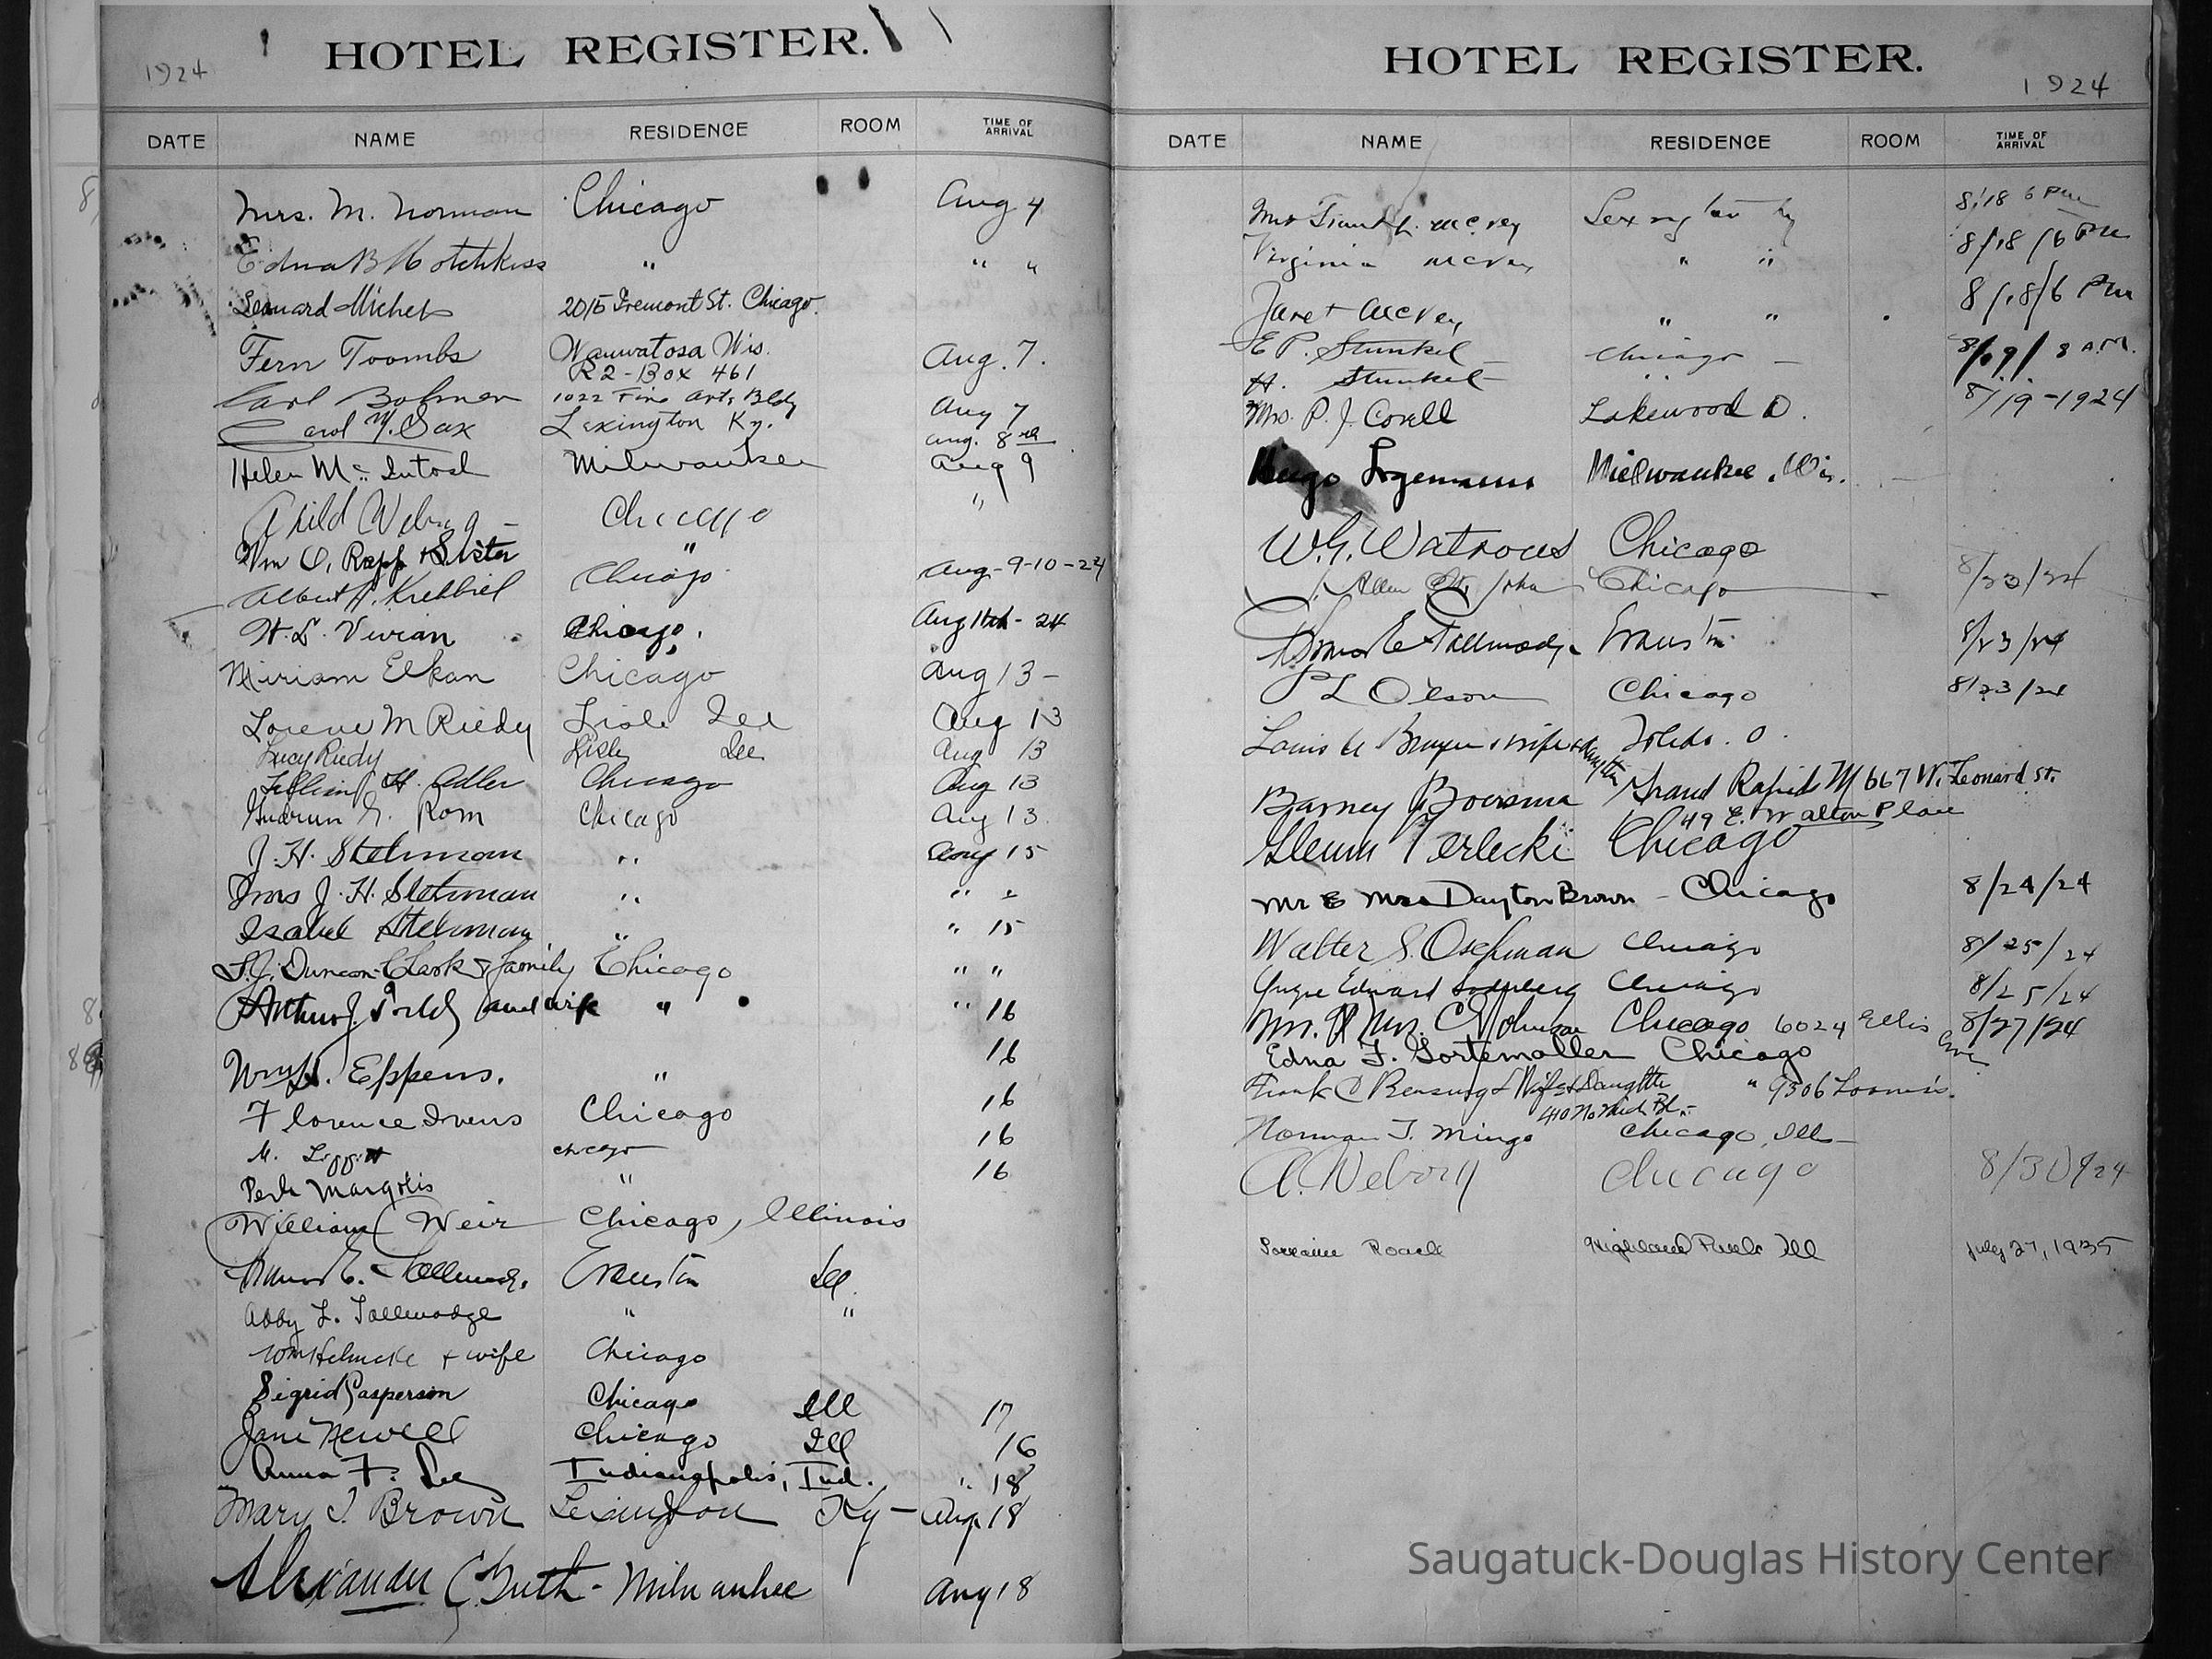 1924
HOTEL REGISTER.
DATE NAME RESIDENCE ROOM TIME OF ARRIVAL
Mrs. M. Norman Chicago Aug 4
Edna B Hotchkiss " " "
Leonard Michels 2015 Fremont St. Chicago.
Fern Toombs Wauwatosa Wis. Aug. 7.
R2-Box 461
Carl Bohnen 1022 Fine Arts Bldg Aug 7
Carol M. Sax Lexington Ky. Aug. 8
Helen Mc Intosh Milwaukee Aug 9
Chicago "
Wm O. Rapp & Sister "
Albert H. Krehbiel Chicago Aug-9-10-24
H.L. Vivian Chicago, Aug 11th - 24
Miriam Elkan Chicago Aug 13 -
Lorene M Riedy Lisle Ill Aug 13
Lucy Riedy Lisle Ill Aug 13
Lillian H. Adler Chicago Aug 13
Gudrun Rom Chicago Aug 13
J. H. Stehman " Aug 15
Mrs J. H. Stehman " " "
Isabel Stehman " " 15
S.J. Duncan-Clark & family Chicago " "
Arthur J. Todd and wife " " 16
Wm H. Eppens. " 16
Florence Ivens Chicago 16
M. Chicago 16
Margolis " 16
William Weir Chicago, Illinois
Thomas E. Tallmadge Evanston Ill.
Abby L. Tallmadge " "
Wm Helmcke + wife Chicago
Sigrid Casperson Chicago Ill 17
Jane Newell Chicago Ill 16
Anna F. Lee Indianapolis, Ind. " 18
Mary I. Brown Lexington Ky - Aug 18
Alexander C. Guth - Milwaukee Aug 18
HOTEL REGISTER.
1924
DATE NAME RESIDENCE ROOM TIME OF ARRIVAL
Mrs Frank L. McVey Lexington Ky 8/18 6 PM
Virginia McVey " " 8/18/6 PM
Janet McVey " " 8/18/6 PM
E P. Stunkel - Chicago - 8/19/ 8 A.M.
H. Stunkel - " "
Mrs. P. J. Corell Lakewood O. 8/19-1924
Hugo Logemann Milwaukee, Wis.
W. G. Watrous Chicago
J. Allen St. John Chicago 8/23/24
Thomas E Tallmadge Evanston 8/23/24
P L Olson Chicago 8/23/24
Louis U Bruyere & wife & daughter Toledo. O.
Barney Boersma Grand Rapids M 667 W. Leonard St.
49 E. Walton Place
Glenn Terlecki Chicago
Mr & Mrs Dayton Brown - Chicago 8/24/24
Walter S. Chicago 8/25/24
Yngve Edward Soderberg Chicago 8/25/24
Mr. & Mrs. C Johnson Chicago 6024 Ellis Ave 8/27/24
Edna F. Gortemoller Chicago
Frank C Bensing & Wife & Daughter " 9306 Loomis.
410 No Mich Bl.-
Norman T. Mingo Chicago, Ills-
Chicago 8/30/24
Lorraine Roach Highland Park Ill July 27, 1935
Saugatuck-Douglas History Center